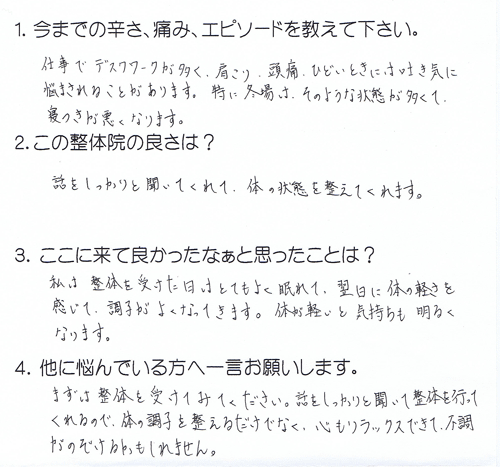 1. 今までの辛さ、痛み、エピソードを教えて下さい。
仕事でデスクワークが多く、肩こり、頭痛、ひどいときには吐き気に
悩まされることがあります。特に冬場は、そのような状態が多くて、
寝つきが悪くなります。
2.この整体院の良さは？
話をしっかりと聞いてくれて、体の状態を整えてくれます。
3. ここに来て良かったなぁと思ったことは？
私は整体を受けた日はとてもよく眠れて、翌日に体の軽さを
感じて、調子がよくなってきます。体が軽いと気持ちも明るく
なります。
4. 他に悩んでいる方へ一言お願いします。
まずは整体を受けてみてください。話をしっかりと聞いて整体を行って
くれるので、体の調子を整えるだけでなく、心もリラックスできて、不調
がのぞけるかもしれません。